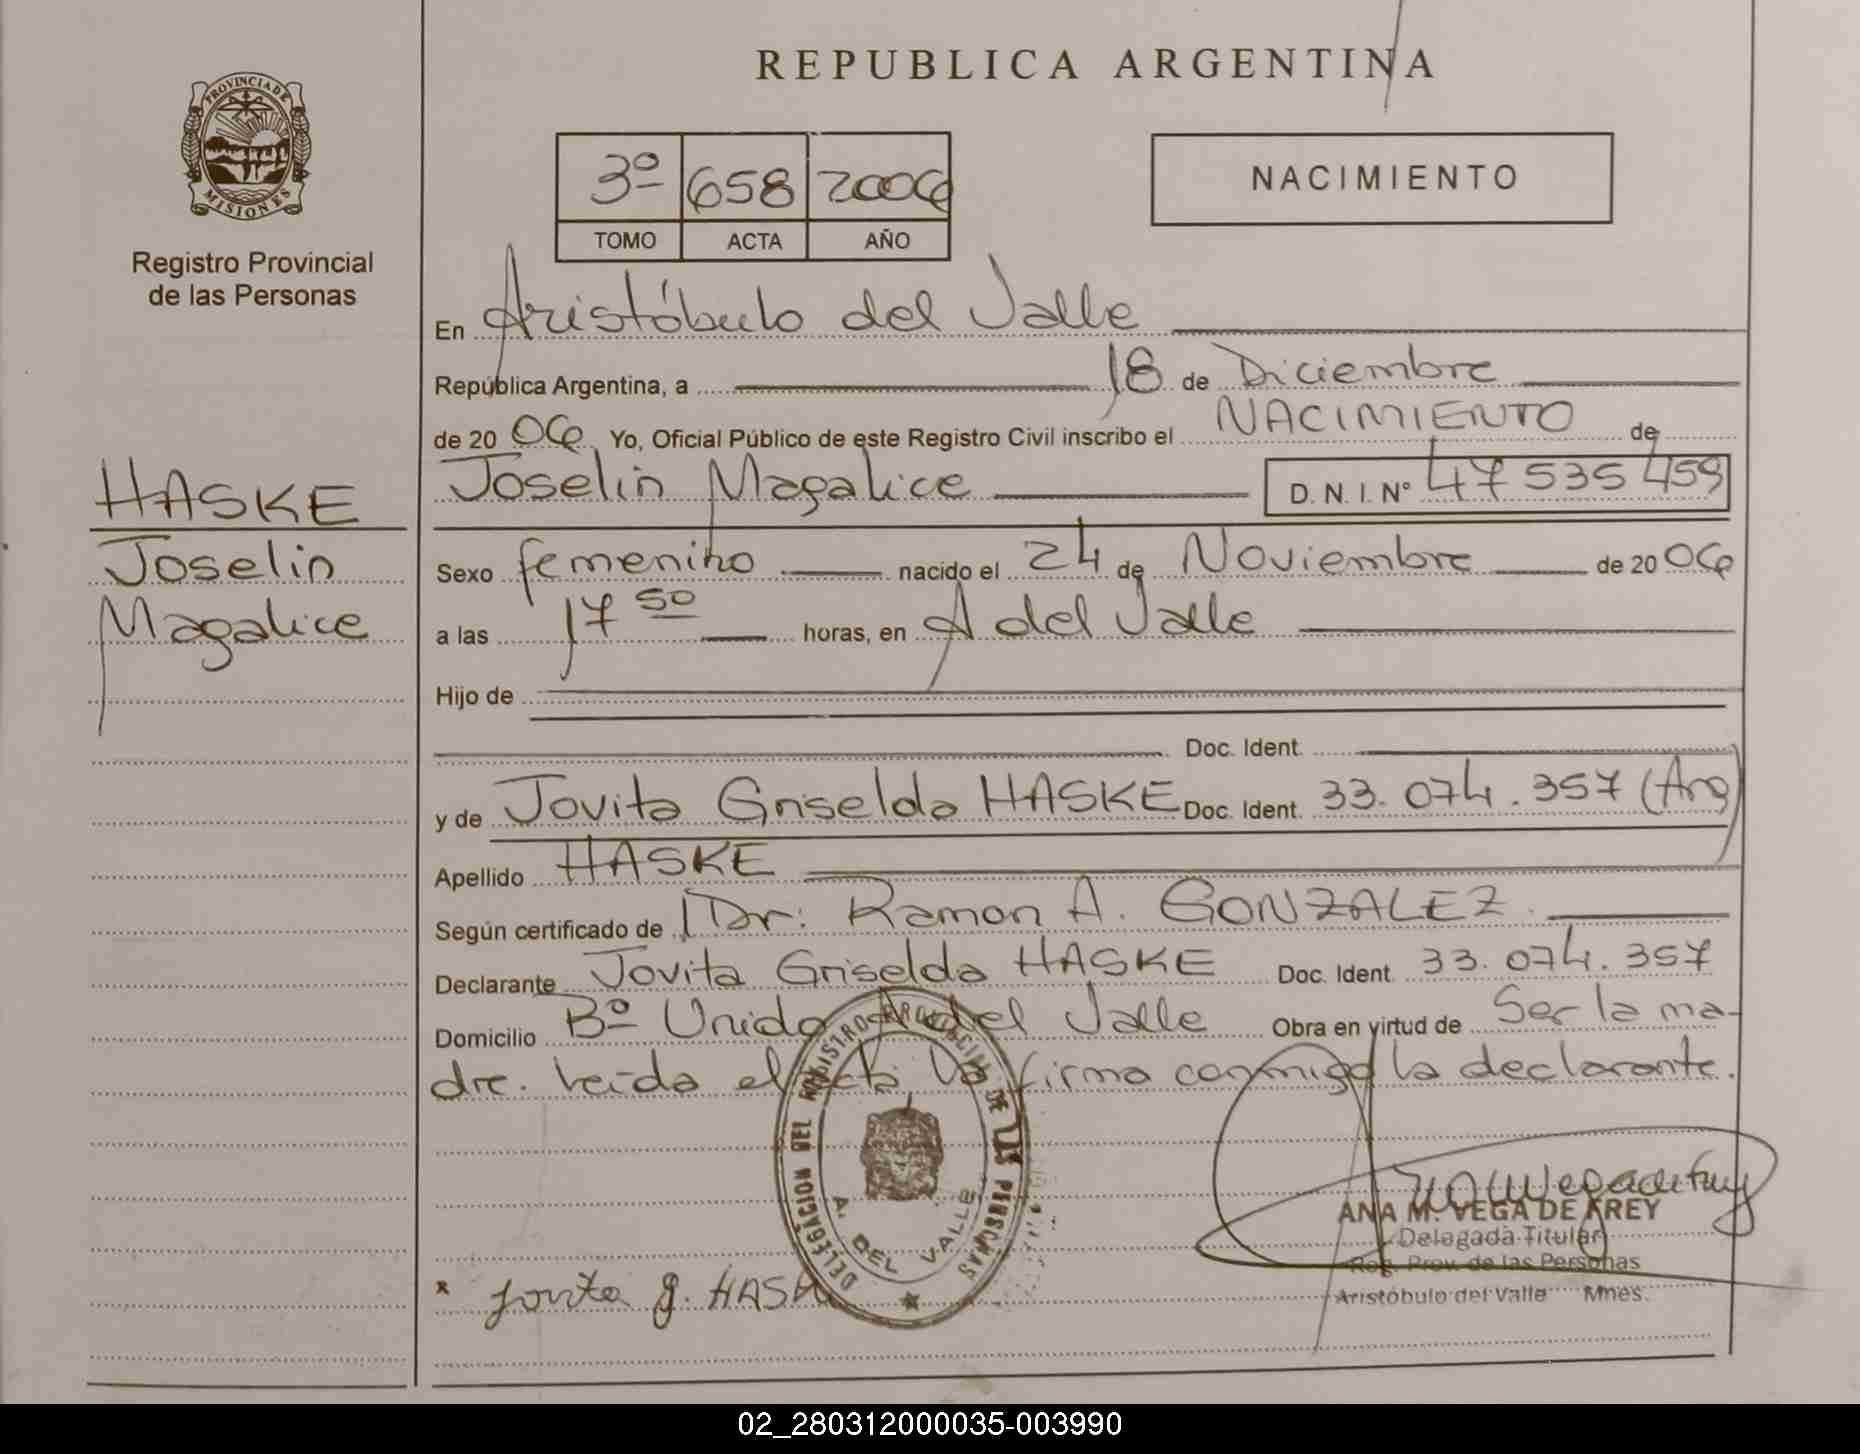 REPUBLICA ARGENTINA
PROVINCIA DE
MISIONES
Registro Provincial
de las Personas
3º 658 2006
TOMO ACTA AÑO
NACIMIENTO
En Aristóbulo del Valle
República Argentina, a 18 de Diciembre
de 2006 Yo, Oficial Público de este Registro Civil inscribo el NACIMIENTO de
Joselin Magalice D. N. I. Nº 47 535 459
HASKE
Joselin
Magalice
Sexo femenino nacido el 24 de Noviembre de 2006
a las 17 50 horas, en A del Valle
Hijo de
Doc. Ident.
y de Jovita Griselda HASKE Doc. Ident. 33.074.357 (Arg)
Apellido HASKE
Según certificado de Dr: Ramon A. GONZALEZ
Declarante Jovita Griselda HASKE Doc. Ident. 33.074.357
Domicilio Bº Unido A del Valle Obra en virtud de Ser la ma-
dre. Leida el acta la firma conmigo la declarante.
DELEGACION DEL REGISTRO PROVINCIAL DE LAS PERSONAS
A. DEL VALLE
ANA M. VEGA DE FREY
Delegada Titular
Reg. Prov. de las Personas
Aristóbulo del Valle Mnes.
x Jovita g. HASK
02_280312000035-003990